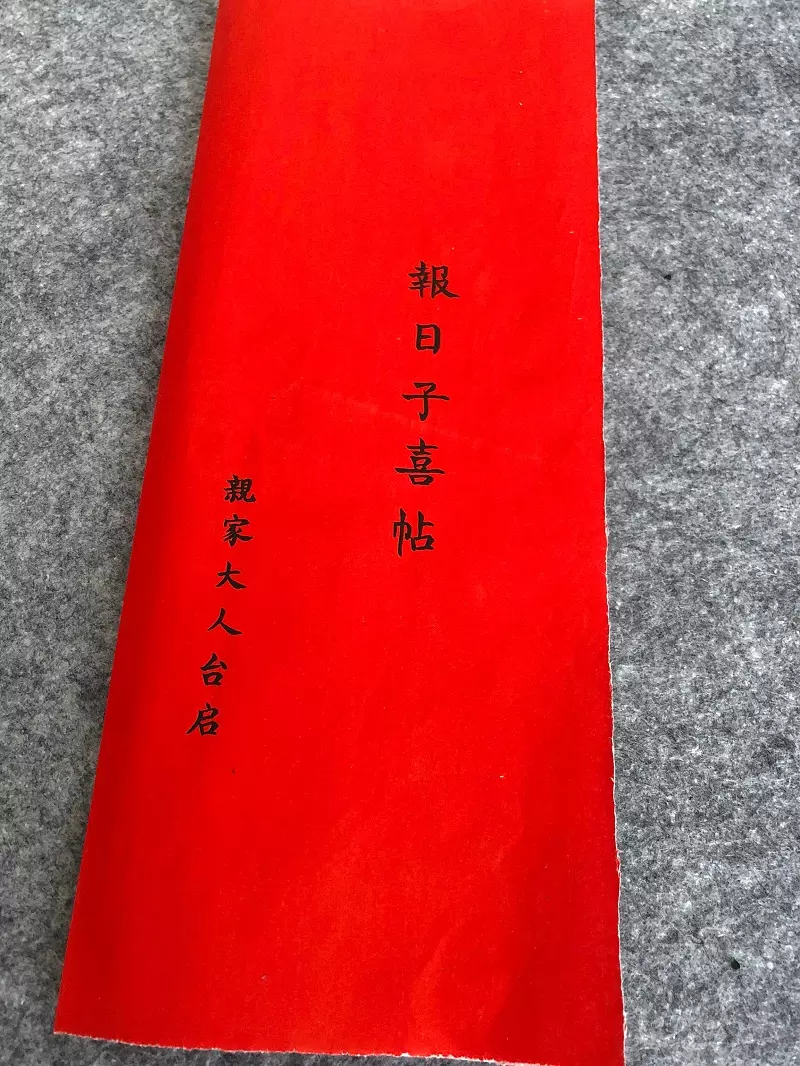 報日子喜帖
親家大人台启